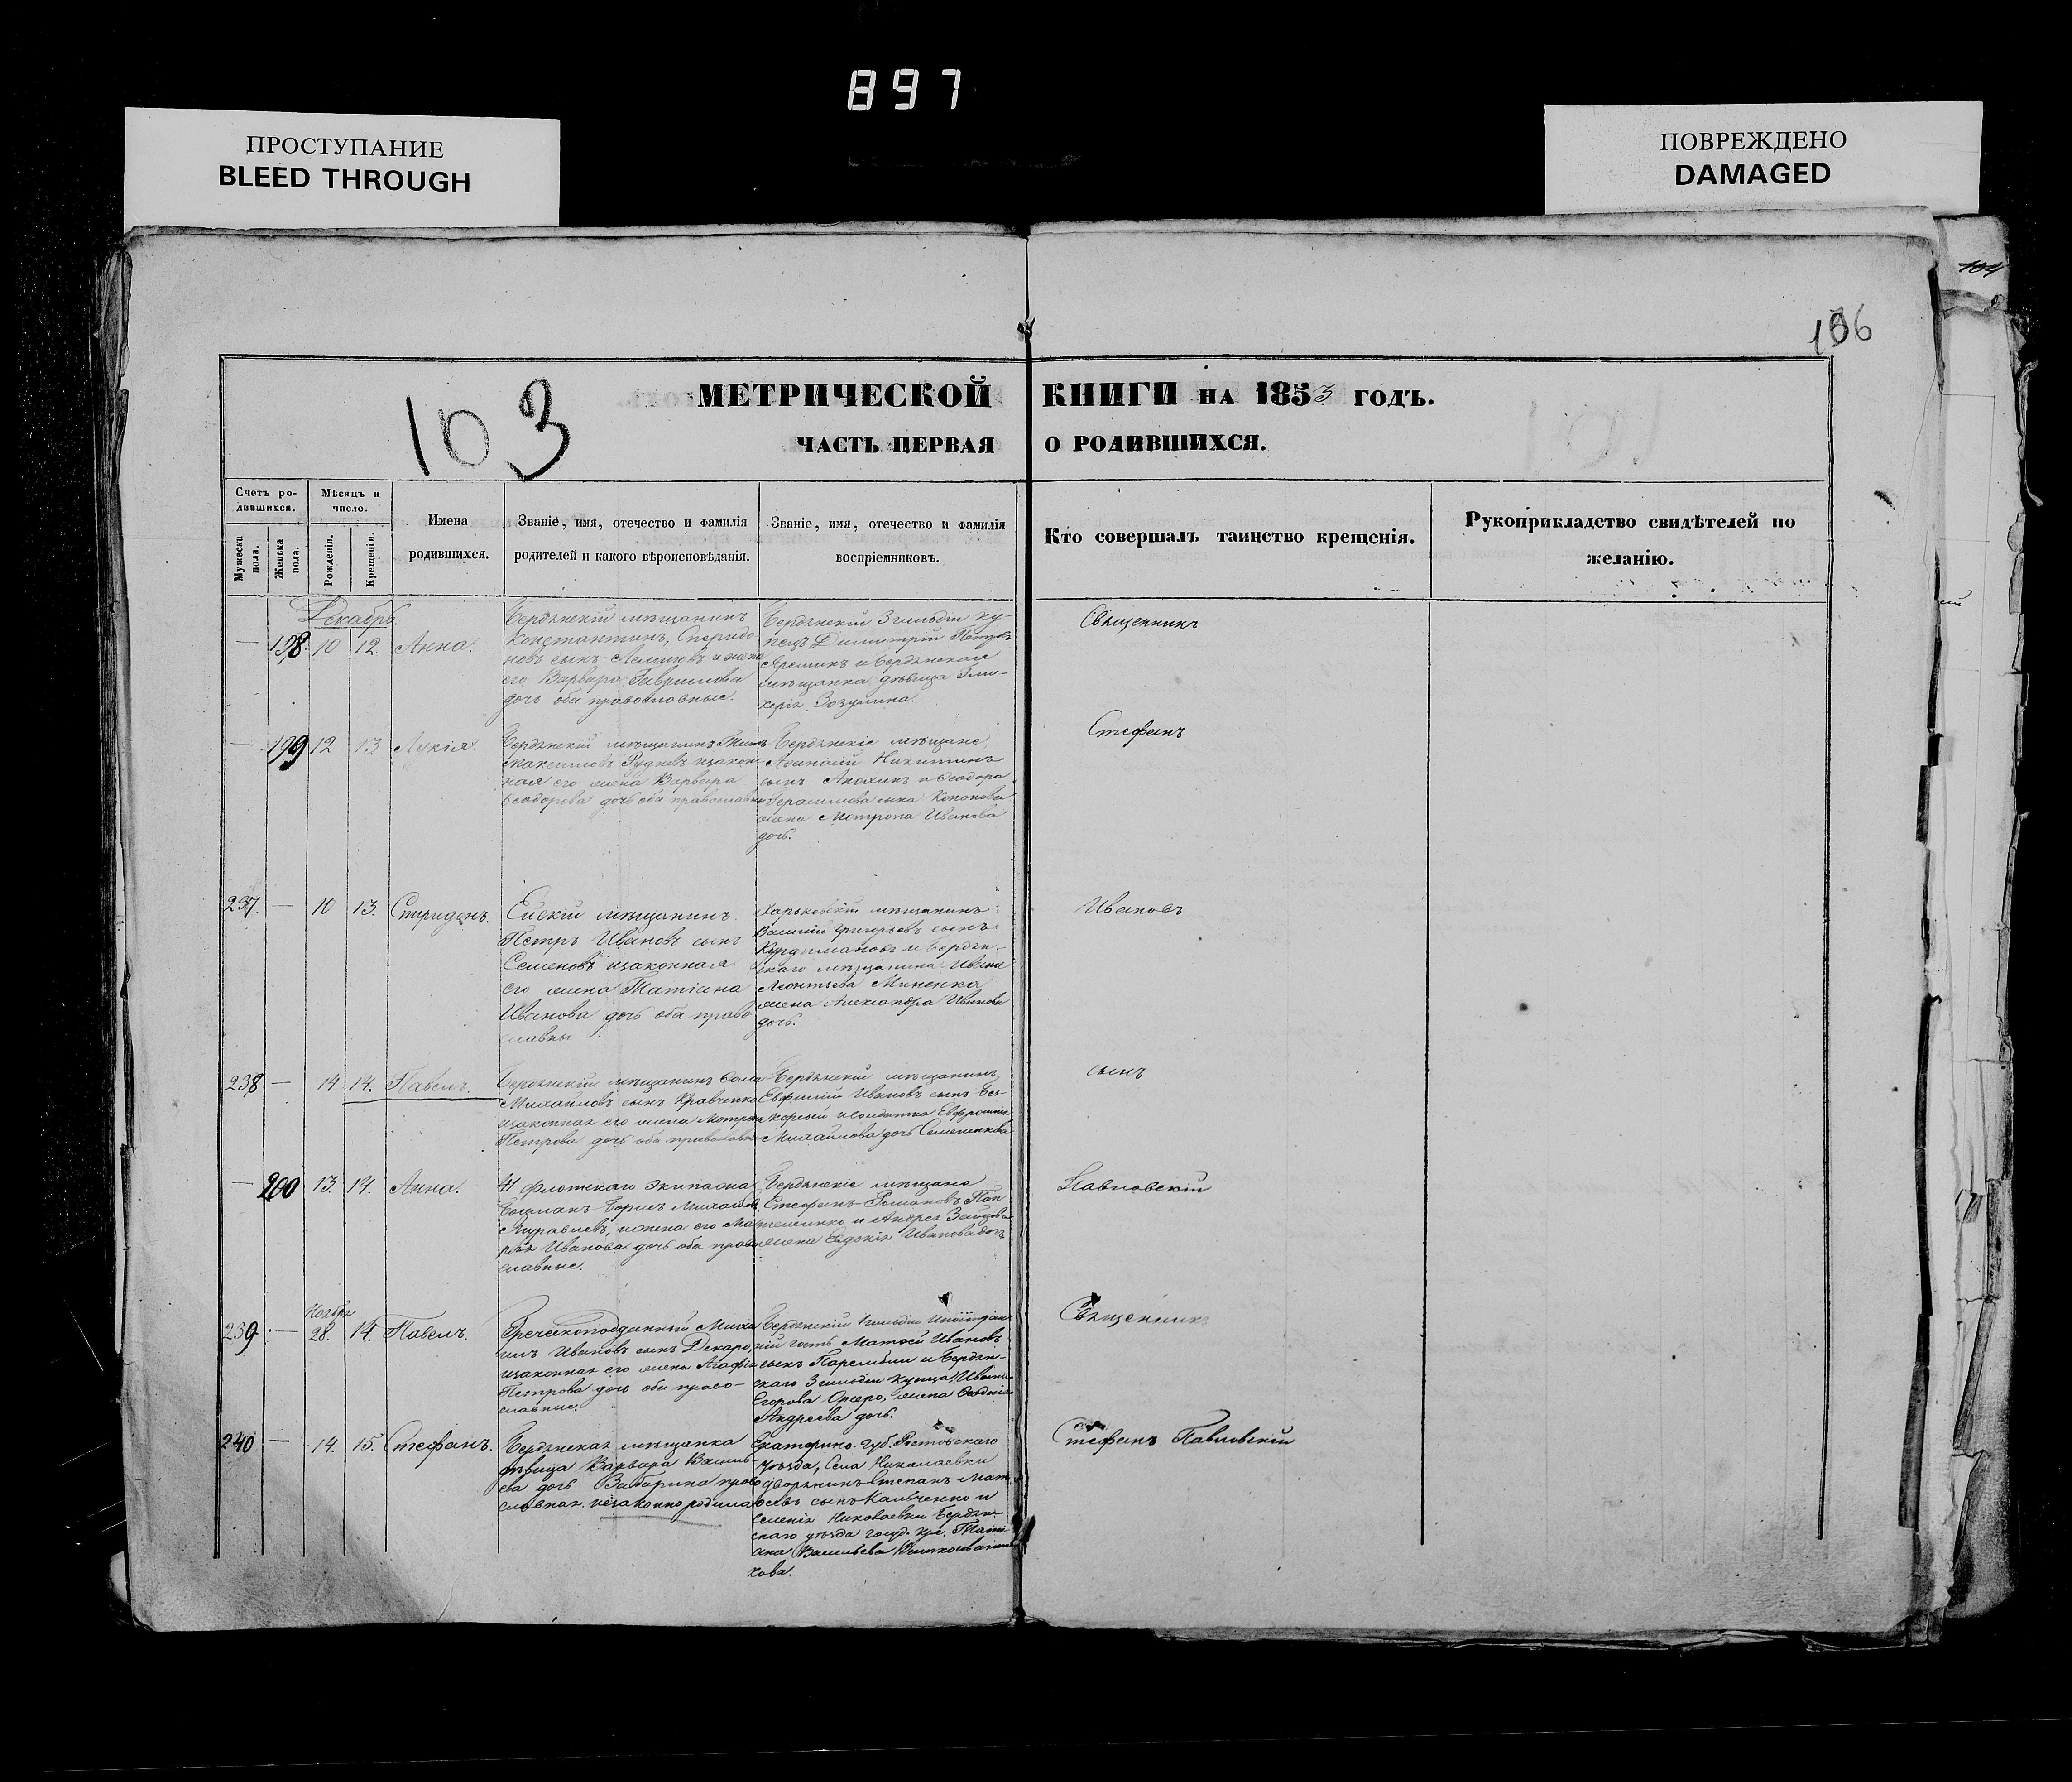 897
ПРОСТУПАНИЕ
BLEED THROUGH
ПОВРЕЖДЕНО
DAMAGED
104
136
103
МЕТРИЧЕСКОЙ КНИГИ НА 1853 ГОДЪ.
ЧАСТЬ ПЕРВАЯ О РОДИВШИХСЯ.
Счетъ ро-
дившихся.
Мужеска пола.
Женска пола.
Мѣсяцъ и
число.
Рожденія.
Крещенія.
Имена
родившихся.
Званіе, имя, отечество и фамилія
родителей и какого вѣроисповѣданія.
Званіе, имя, отечество и фамилія
воспріемниковъ.
Кто совершалъ таинство крещенія.
Рукоприкладство свидѣтелей по
желанію.
Декабрь
— 198 10 12. Анна.
Бердянскій мѣщанинъ
Константинъ, Спиридо
новъ сынъ и жена
его Варвара Гаврилова
дочь оба православные.
Бердянскій 3 гильдіи ку-
пецъ Димитрій Петровъ
и Бердянская
мѣщанка дѣвица Гли-
керія
Священникъ
— 199 12 13 Лукія.
Бердянскій мѣщанинъ
Максимовъ Рудневъ изакон
ная его жена Варвара
Ѳеодорова дочь оба православны
Бердянскіе мѣщане
Никитинъ
сынъ и Ѳеодора
Герасимова сына
жена Мотрона Иванова
дочь.
Стефанъ
237. — 10 13. Спиридонъ.
Ейскій мѣщанинъ
Петръ Ивановъ сынъ
Семеновъ изаконная
его жена Татіана
Иванова дочь оба право
славны
Харьковскій мѣщанинъ
Василій Григорьевъ сынъ
и Бердян-
скаго мѣщанина Ивана
Леонтьева Миненка
жена Александра Иванова
дочь.
Ивановъ
238 — 14 14. Павелъ.
Бердянскій мѣщанинъ
Михайловъ сынъ Кравченко
изаконная его жена Матрона
Петрова дочь оба православн
Бердянскій мѣщанинъ
Евфимій Ивановъ сынъ Без-
исолдатка Евфросинія
Михайлова дочь
сынъ
— 200 13. 14. Анна.
41 Флотскаго Экипажа
Боцманъ Борисъ Михайлов
Муравьевъ, ижена его Ма
рія Иванова дочь оба право
славные.
Бердянскіе мѣщане
Стефанъ Романовъ
и Андрея Зайцова
жена Евдокія Иванова дочь
Павловскій
Ноября
239 — 28. 14. Павелъ.
Греческоподданный Миха
илъ Ивановъ сынъ
изаконная его жена Агафія
Петрова дочь оба право-
славные.
Бердянскій 1 гильдіи Иностран
ній гость Матѳей Ивановъ
сынъ и Бердян-
скаго 3 гильдіи купца Ивана
Егорова жена
Андреева дочь.
Священникъ
240 — 14. 15. Стефанъ.
Бердянская мѣщанка
дѣвица Варвара Василь-
ева дочь право
славная. незаконно родила
Екатерино. губ. Ростовскаго
уѣзда, Села Николаевки
дворянинъ Степанъ Мат
ѳеевъ сынъ и
селенія Николаевки Бердян-
скаго уѣзда госуд. кре. Тати
ана Васильева
кова.
Стефанъ Павловскій